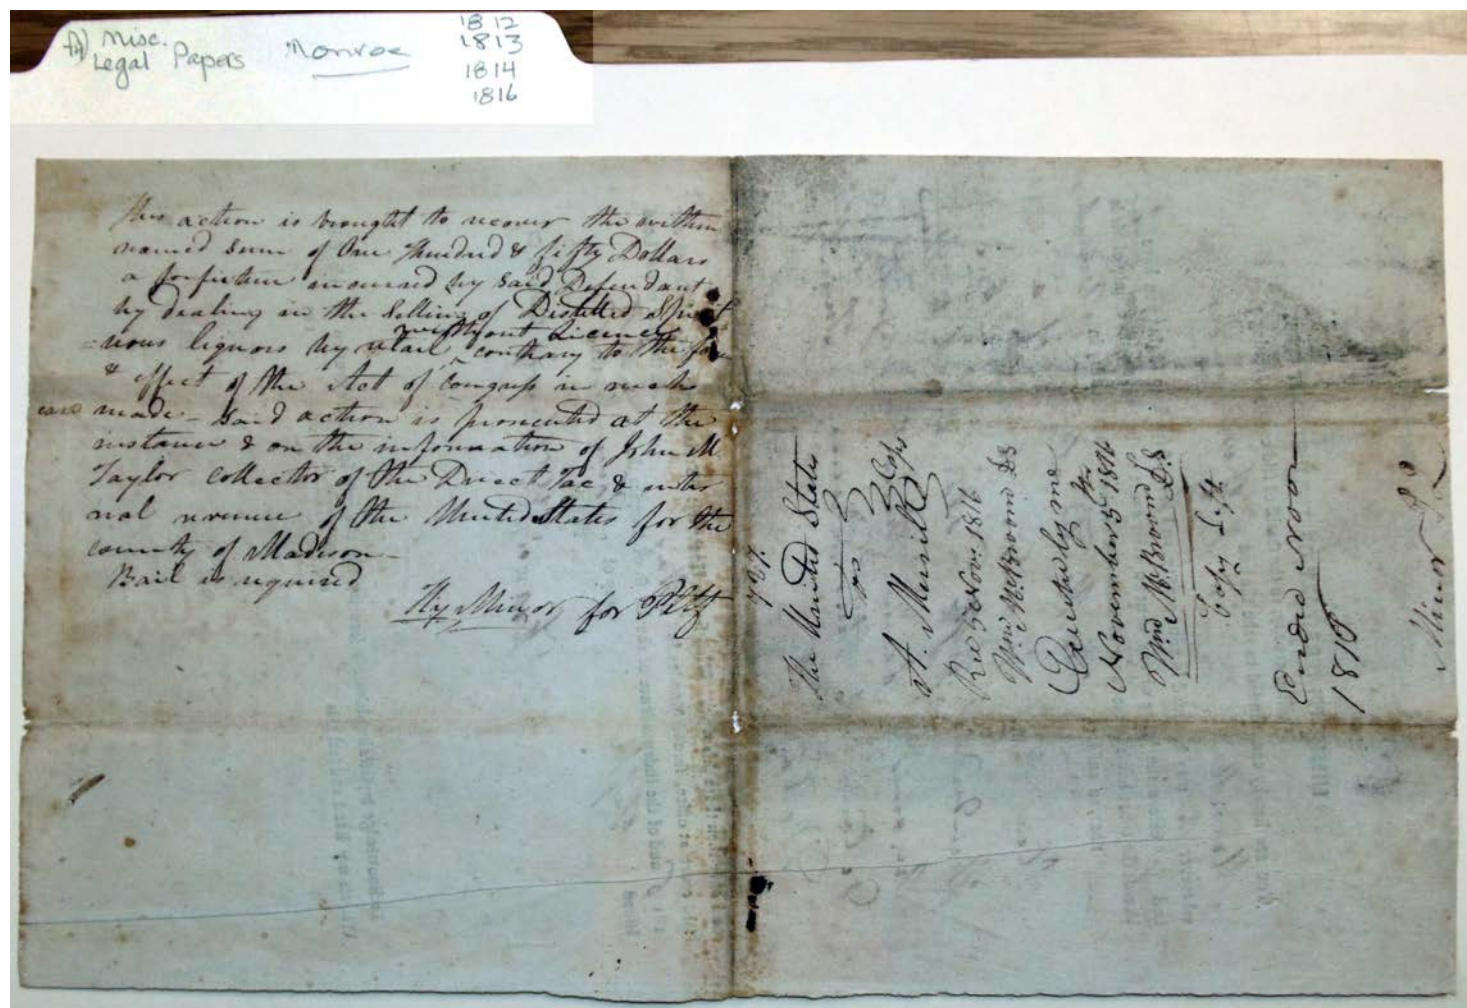 Misc.
Legal Papers Monroe
1812
1813
1814
1816
This action is brought to recover the within
named sum of One Hundred & fifty Dollars
a forfiture incurred by said Defendant
by dealing in the Selling of Distilled Spirit
=uous liquors by retail without Licence contrary to the form
& effect of the Act of Congress in such
case made – Said action is prosecuted at the
instance & on the information of John M
Taylor collector of the Direct Tax & inter
nal revenue of the United States for the
county of Madison –
Bail is required
Hy Minor for Pltf
The United States
vs
A. Mersill
Caps
Recd 5 Nov. 1816
Wm McBroom DS
Executed by me
November 5th 1816
Wm McBroom DS
Copy Left
Ended Nov
1818
Minor P.Q.